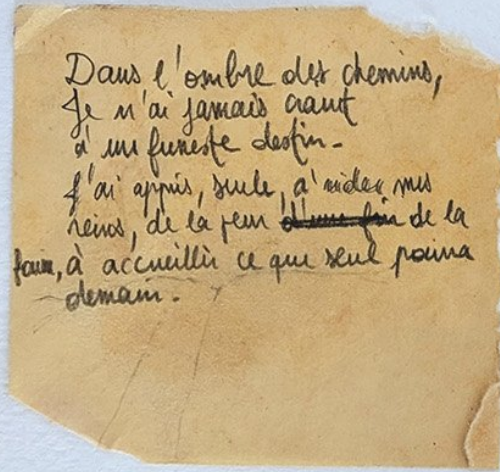 Dans l'ombre des chemins,
Je n'ai jamais craint
d'un funeste destin.
J'ai appris, seule, à vider mes
reins, de la peur d'une fin de la
faim, à accueillir ce que seul pourra
demain.